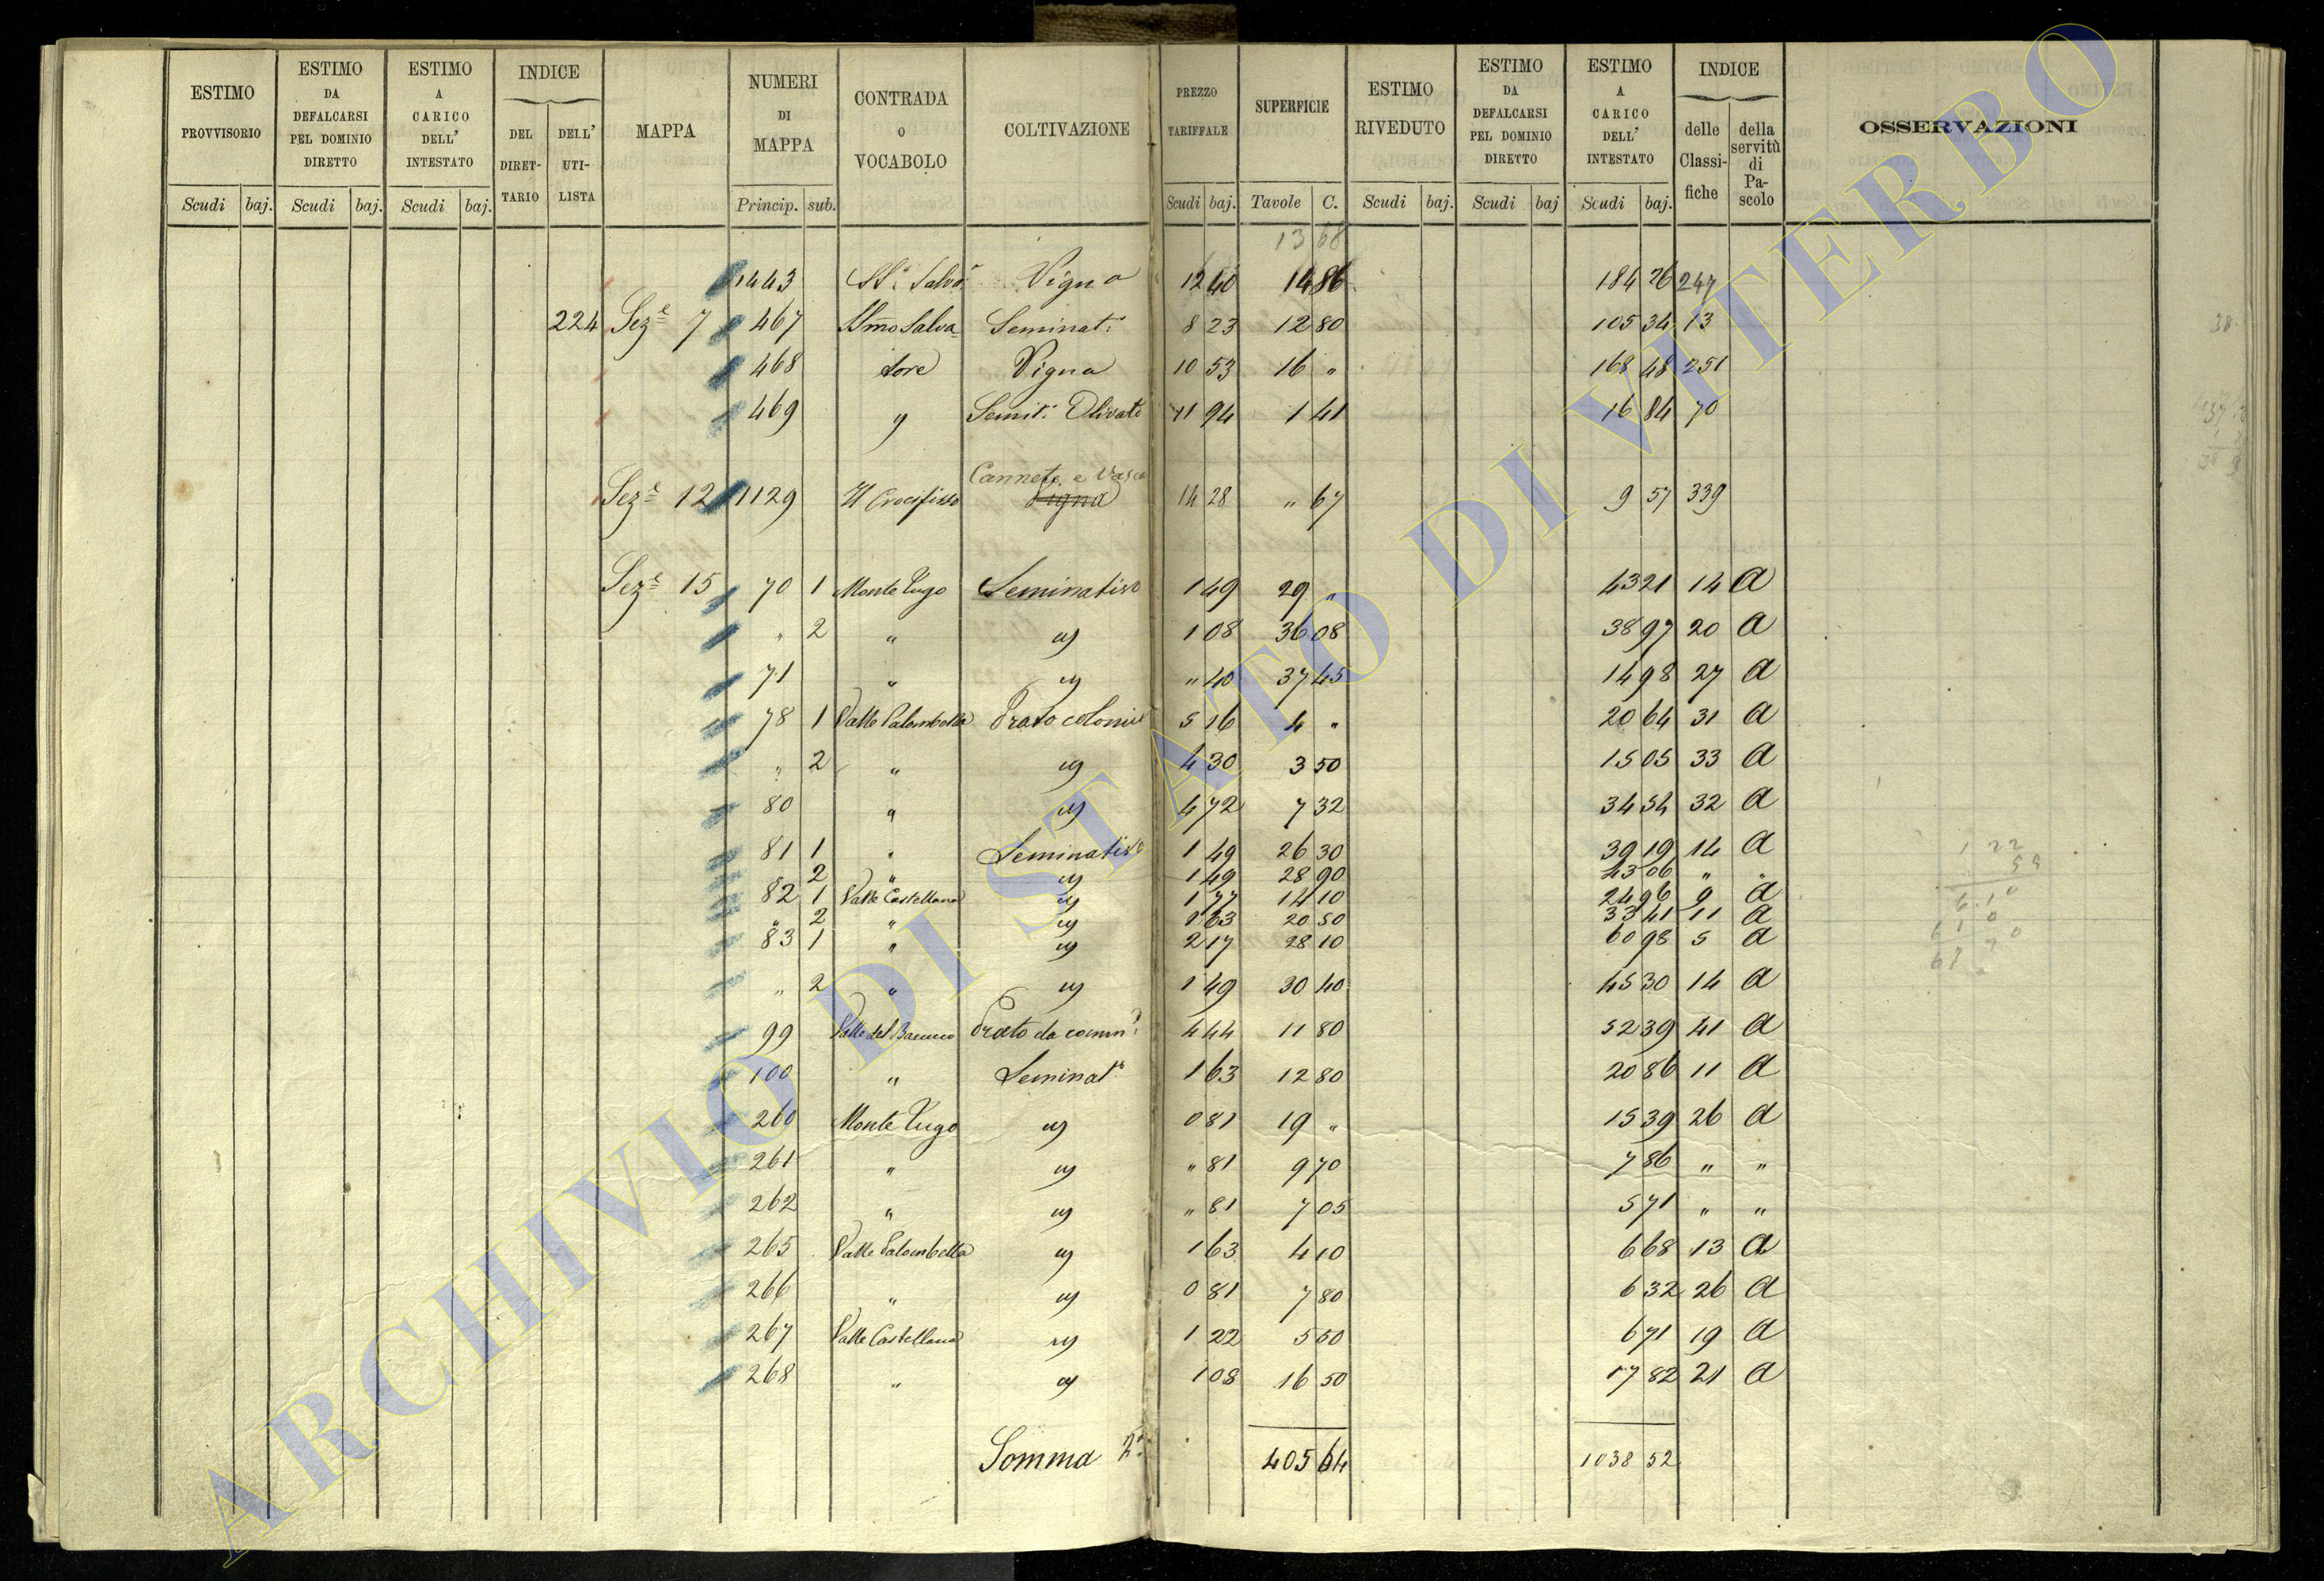 ESTIMO PROVVISORIO Scudi baj.
ESTIMO DA DEFALCARSI PEL DOMINIO DIRETTO Scudi baj.
ESTIMO A CARICO DELL' INTESTATO Scudi baj.
INDICE DEL DIRET- TARIO DELL' UTI- LISTA
MAPPA
NUMERI DI MAPPA Princip. sub.
CONTRADA O VOCABOLO
COLTIVAZIONE
PREZZO TARIFFALE Scudi baj.
SUPERFICIE Tavole C.
ESTIMO RIVEDUTO Scudi baj.
ESTIMO DA DEFALCARSI PEL DOMINIO DIRETTO Scudi baj
ESTIMO A CARICO DELL' INTESTATO Scudi baj.
INDICE delle Classi- fiche della servitù di Pa- scolo
OSSERVAZIONI
13 68
1443 SS. Salvd. Vigna 12 40 14 86 184 26 247
224 Seze 7 467 SSmo Salva Seminat. 8 23 12 80 105 34 13
468 tore Vigna 10 53 16 " 168 48 251
469 " Semit. Olivato 11 94 1 41 16 84 70
Canneto e Vasca
Seze 12 1129 Il Crocifisso Vigna 14 28 " 67 9 57 339
Seze 15 70 1 Monte Jugo Seminativo 1 49 29 " 43 21 14 a
" 2 " " 1 08 36 08 38 97 20 a
71 " " " 40 37 45 14 98 27 a
78 1 Valle Palombella Prato colonic 5 16 4 " 20 64 31 a
" 2 " " 4 30 3 50 15 05 33 a
80 " " 4 72 7 32 34 54 32 a
81 1 " Seminativo 1 49 26 30 39 19 14 a
" 2 " " 1 49 28 90 43 06 " "
82 1 Valle Castellana " 1 77 14 10 24 96 9 a
" 2 " " 1 63 20 50 33 41 11 a
83 1 " " 2 17 28 10 60 98 5 a
" 2 " " 1 49 30 40 45 30 14 a
99 Valle del Bacucco Prato da comm. 4 44 11 80 52 39 41 a
100 " Seminato 1 63 12 80 20 86 11 a
260 Monte Jugo " 0 81 19 " 15 39 26 a
261 " " " 81 9 70 7 86 " "
262 " " " 81 7 05 5 71 " "
265 Valle Palombella " 1 63 4 10 6 68 13 a
266 " " 0 81 7 80 6 32 26 a
267 Valle Castellana " 1 22 5 50 6 71 19 a
268 " " 1 08 16 50 17 82 21 a
Somma 2a 405 64 1038 52
ARCHIVIO DI STATO DI VITERBO